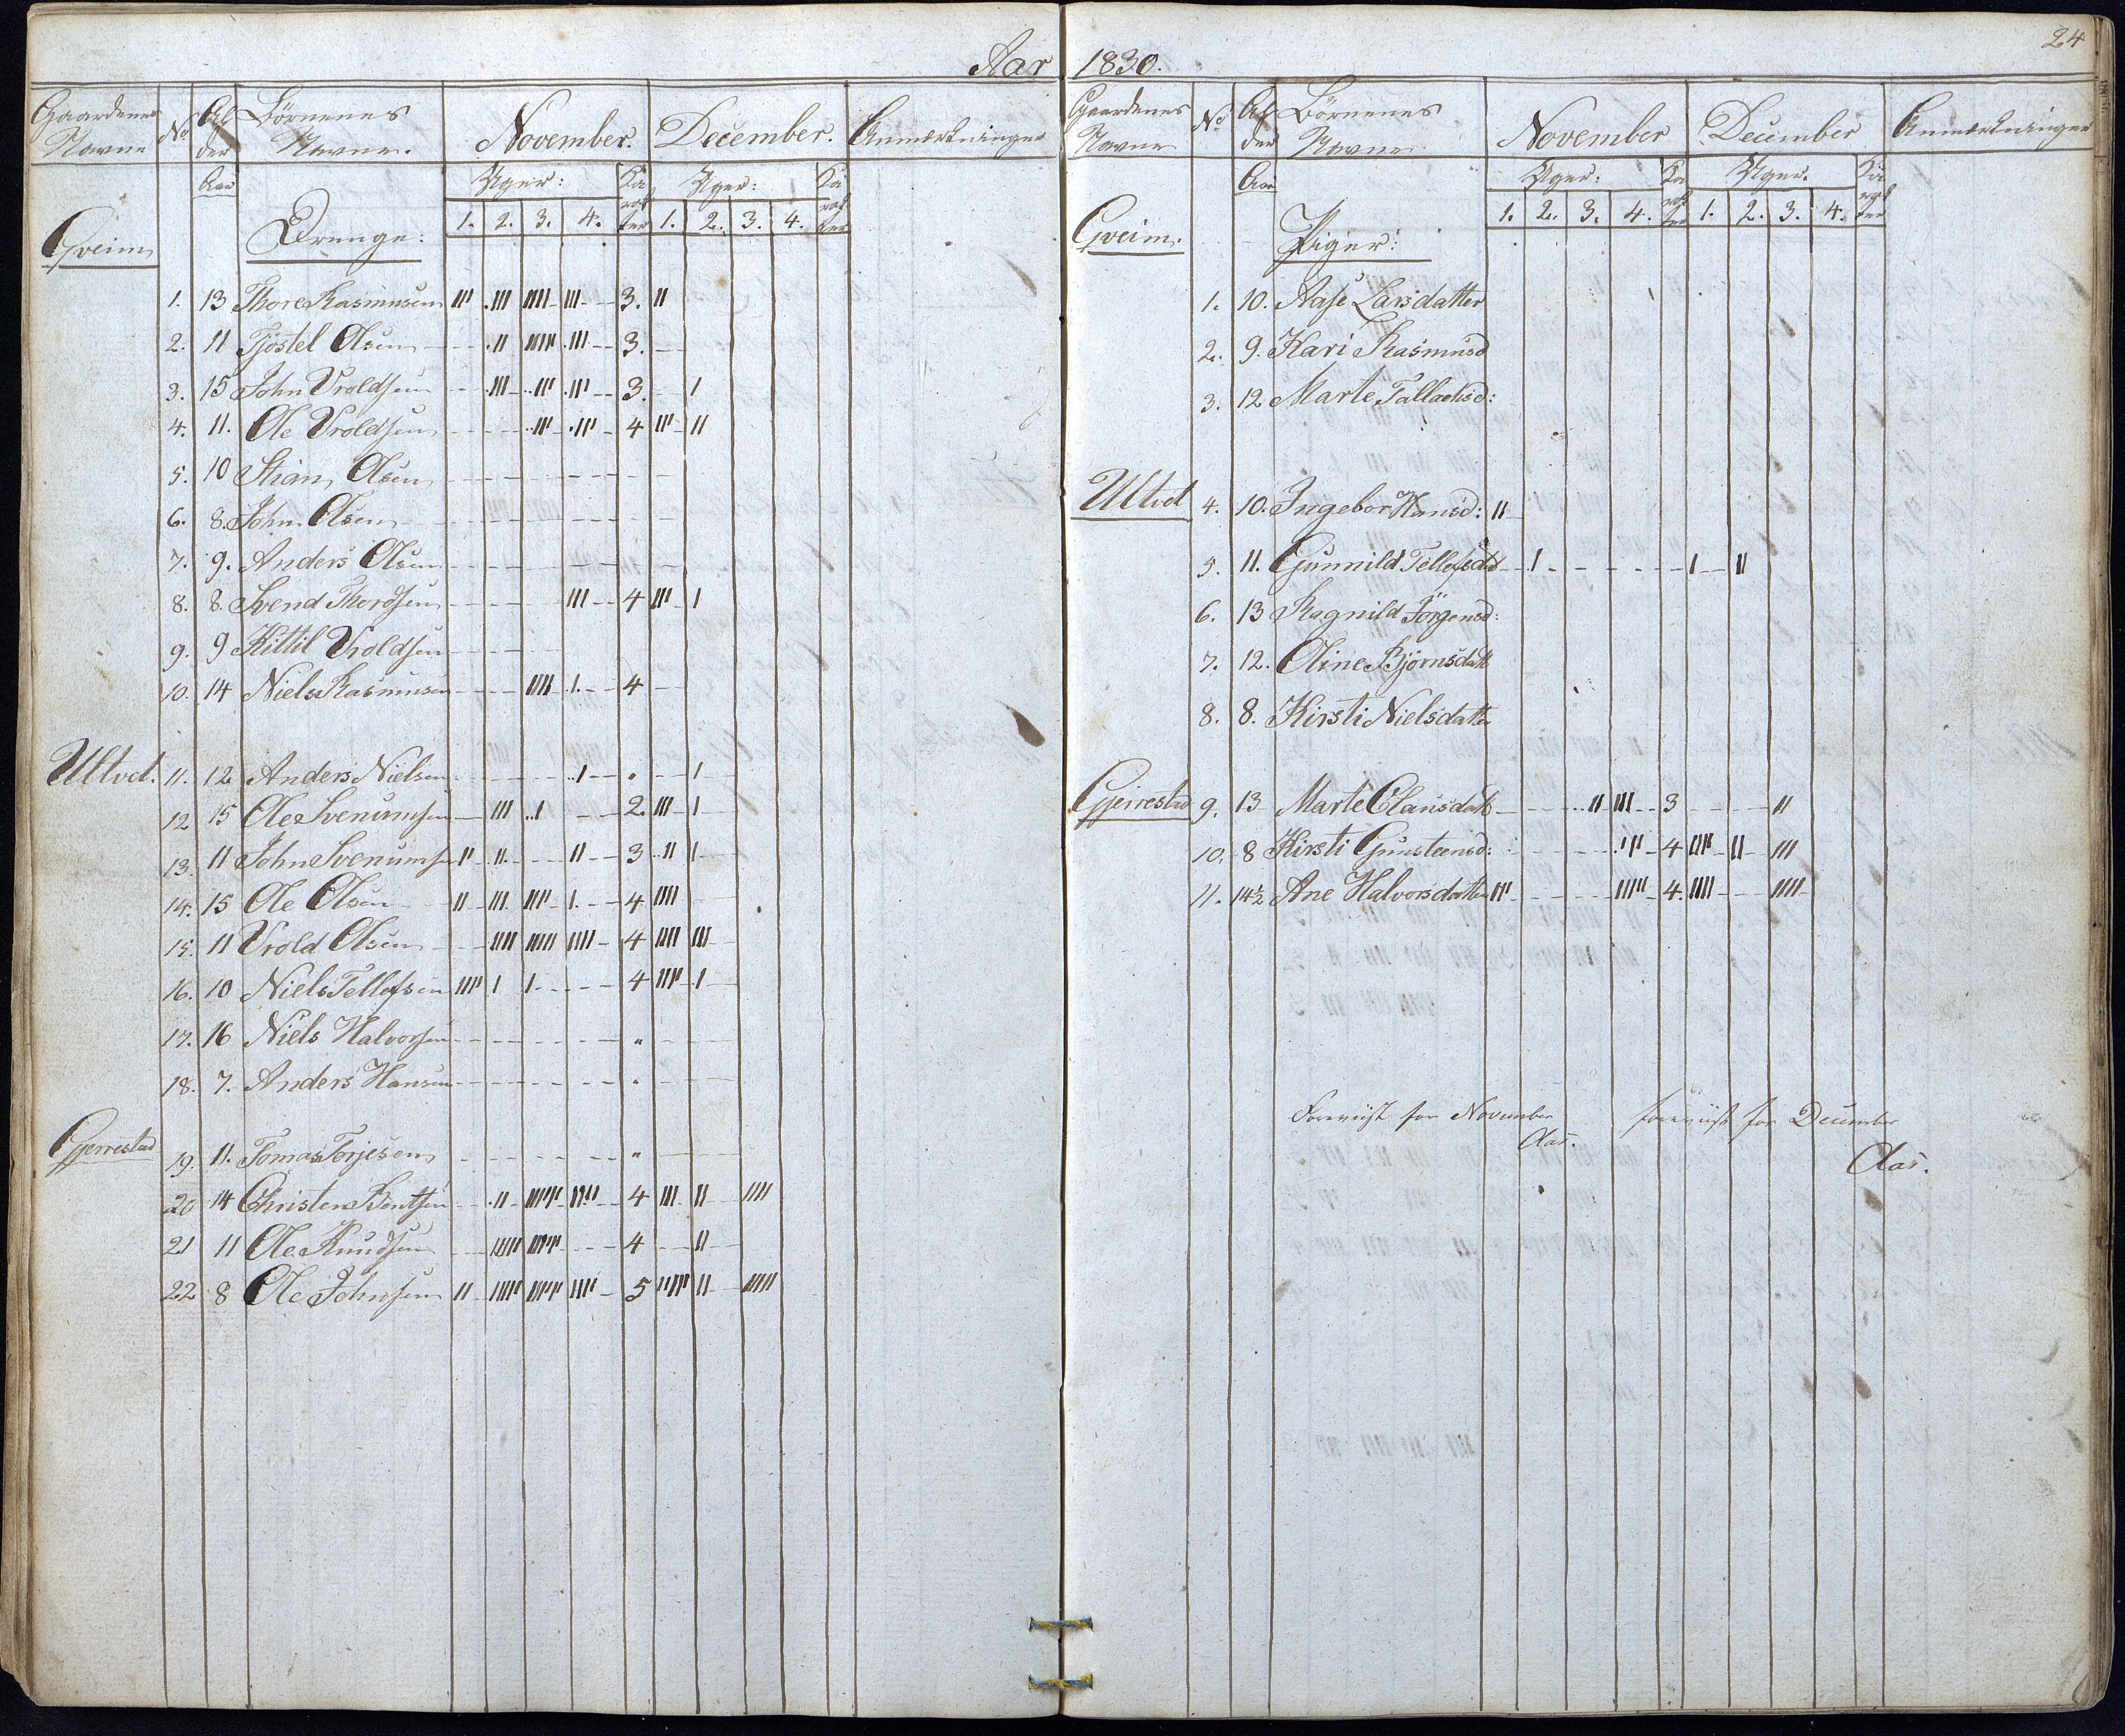 Aar 1830.
24
Gaardenes Navne No Alder Aar Börnenes Navne. November. December. Anmærkninger
Uger: Karakter Uger: Karakter
1. 2. 3. 4. 1. 2. 3. 4.
Gveim Drenge:
1. 13 Thore Rasmusen III .III IIII III 3. II
2. 11 Tjöstel Olsen .II IIII .III 3.
3. 15 John Vroldsen .III ..III .III 3. I
4. 11. Ole Vroldsen ..III .III 4 III II
5. 10 Stian Olsen
6. 8. John Olsen
7. 9. Anders Olsen
8. 8. Svend Thordsen III 4 III I
9. 9 Kittil Vroldsen
10. 14 Niels Rasmusen IIII I. 4
Ultvet. 11. 12 Anders Nielsen ..I " I
12 15 Ole Svenumsen III ..I 2. III I
13. 11 John Svenums II II. II 3 ..II I
14. 15 Ole Olsen II III IIII I. 4 IIII
15. 11 Vrold Olsen IIII IIIII IIII 4 IIII III
16. 10 Niels Tellefsen IIII I I 4 IIII I
17. 16 Niels Halvorsen "
18. 7. Anders Hansen "
Gjerrestad 19. 11. Tomas Torjesen "
20 14 Christen Bentsen .II IIIII IIII 4 III II IIII
21 11 Ole Knudsen IIIII IIIII 4 II
22 8 Ole Johnsen II IIIII IIIII IIII 5 IIIII II IIIII
Gaardenes Navne No Alder Aar Börnenes Navne November December Anmærkninger
Uger: Karakter Uger. Karakter
1. 2. 3. 4. 1. 2. 3. 4.
Gveim. Piger:
1. 10. Aase Larsdatter
2. 9. Kari Rasmusd
3. 12 Marte Tallachsd:
Ultvet 4. 10. Ingebor Hansd: II
5. 11. Gunnild Tellefsdat I I II
6. 13 Ragnild Jörgensd:
7. 12. Oline Björnsdatt
8. 8. Kirsti Nielsdatter
Gjerrestad 9. 13 Marte Clausdatt ..II III 3 II
10. 8 Kirsti Gunsteensd: .III 4 IIII II III
11. 14½ Ane Halvorsdatter III IIIII 4. IIII IIII
Foreviist for November
Aas.
foreviist for December
Aas.